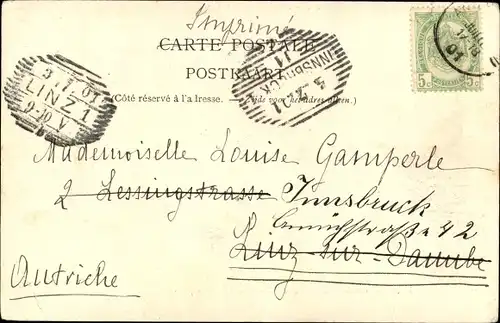 Imprimé
CARTE POSTALE
POSTKAART
(Côté réservé à l'adresse. — Zijde voor het adres alleen.)
5c 5c
LINZ 1
6-90 V
INNSBRUCK
11
01
Mademoiselle Louise Gamperle
2 Lessingstrasse Innsbruck
Linz sur Danube
Autriche